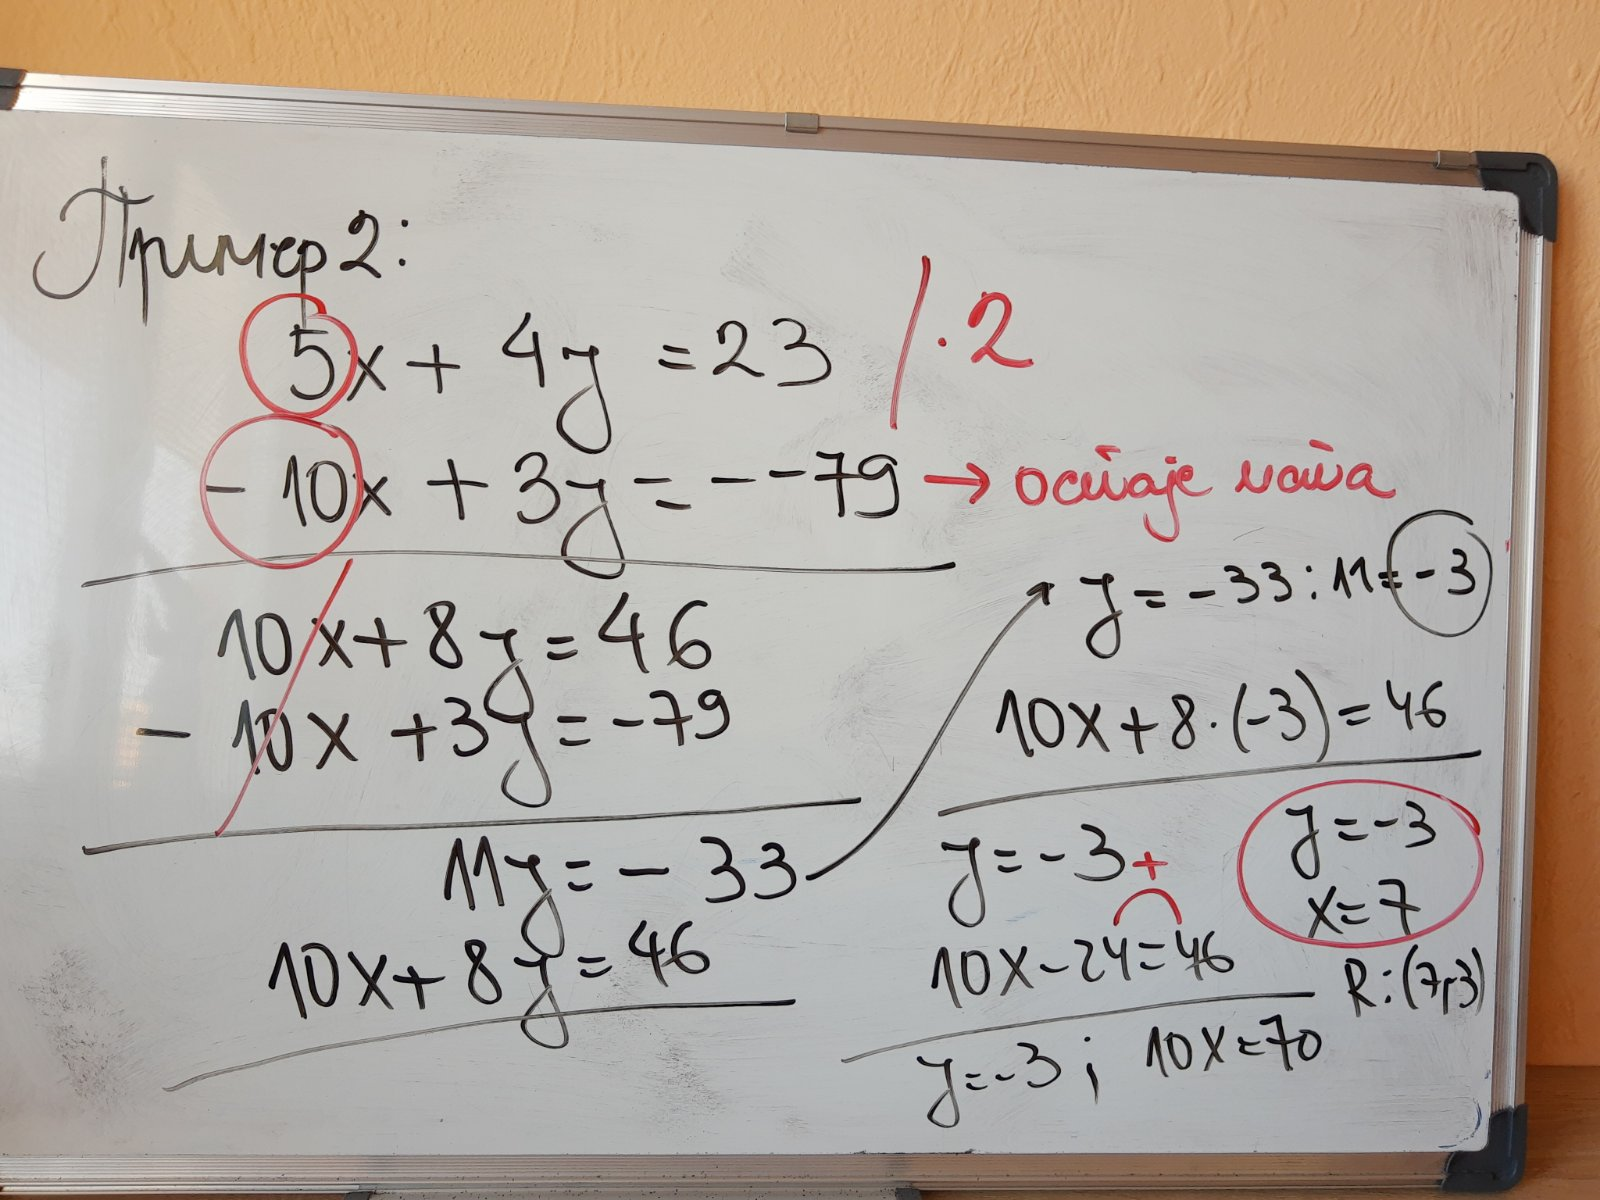 Пример 2:
5x + 4y = 23 / · 2
- 10x + 3y = - -79 → остаје иста
10x + 8y = 46
- 10x + 3y = -79
11y = - 33
10x + 8y = 46
y = -33 : 11 = -3
10x + 8 · (-3) = 46
y = -3
+
10x - 24 = 46
y = -3 ; 10x = 70
y = -3
x = 7
R: (7,-3)